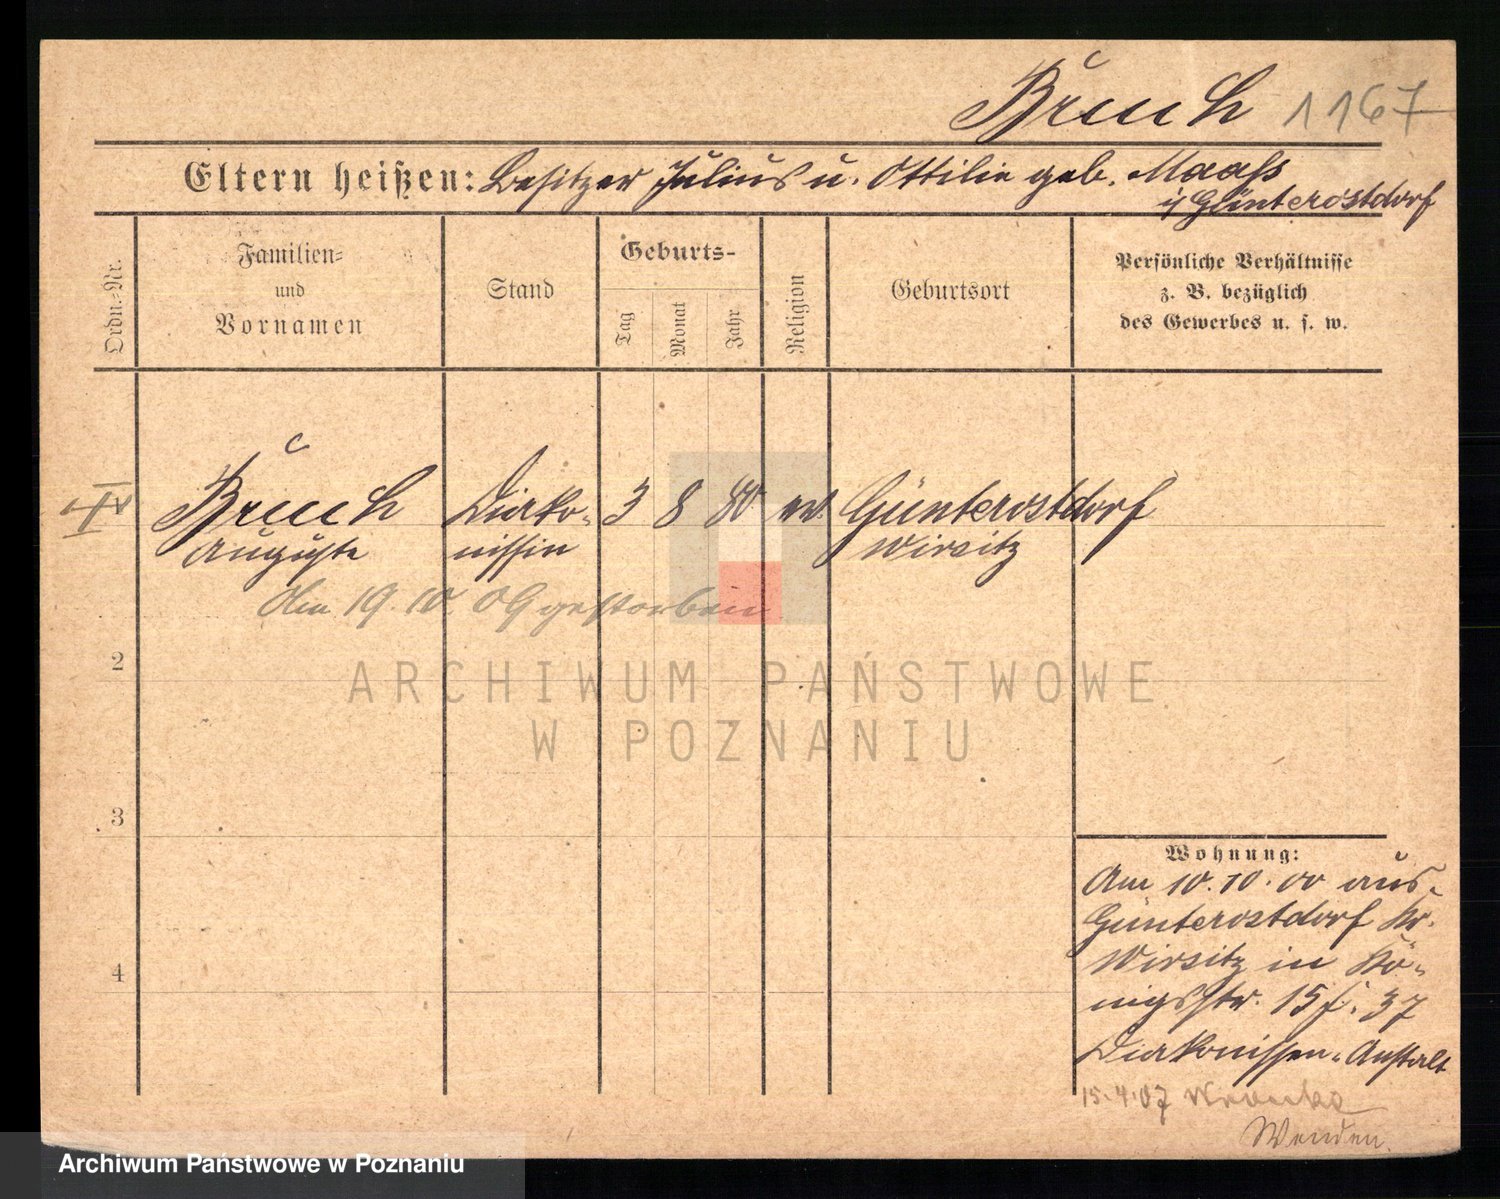 Bruch 1167
Eltern heißen: Besitzer Julius u. Ottilie geb. Maaß
Günterostdorf
Ordn.=Nr.
Familien=
und
Vornamen
Stand
Geburts-
Tag
Monat
Jahr
Religion
Geburtsort
Persönliche Verhältnisse
z. B. bezüglich
des Gewerbes u. s. w.
Bruch Diako- 3 8 80 ev. Günterostdorf
Auguste nissin Wirsitz
Am 19. 10. 09 gestorben
2
3
4
ARCHIWUM PAŃSTWOWE
W POZNANIU
Wohnung:
Am 10.10.00 aus
Günterostdorf Kr.
Wirsitz in Kö-
nigsstr. 15 37
Diakonissen-Anstalt
15.4.07
Wenden
Archiwum Państwowe w Poznaniu